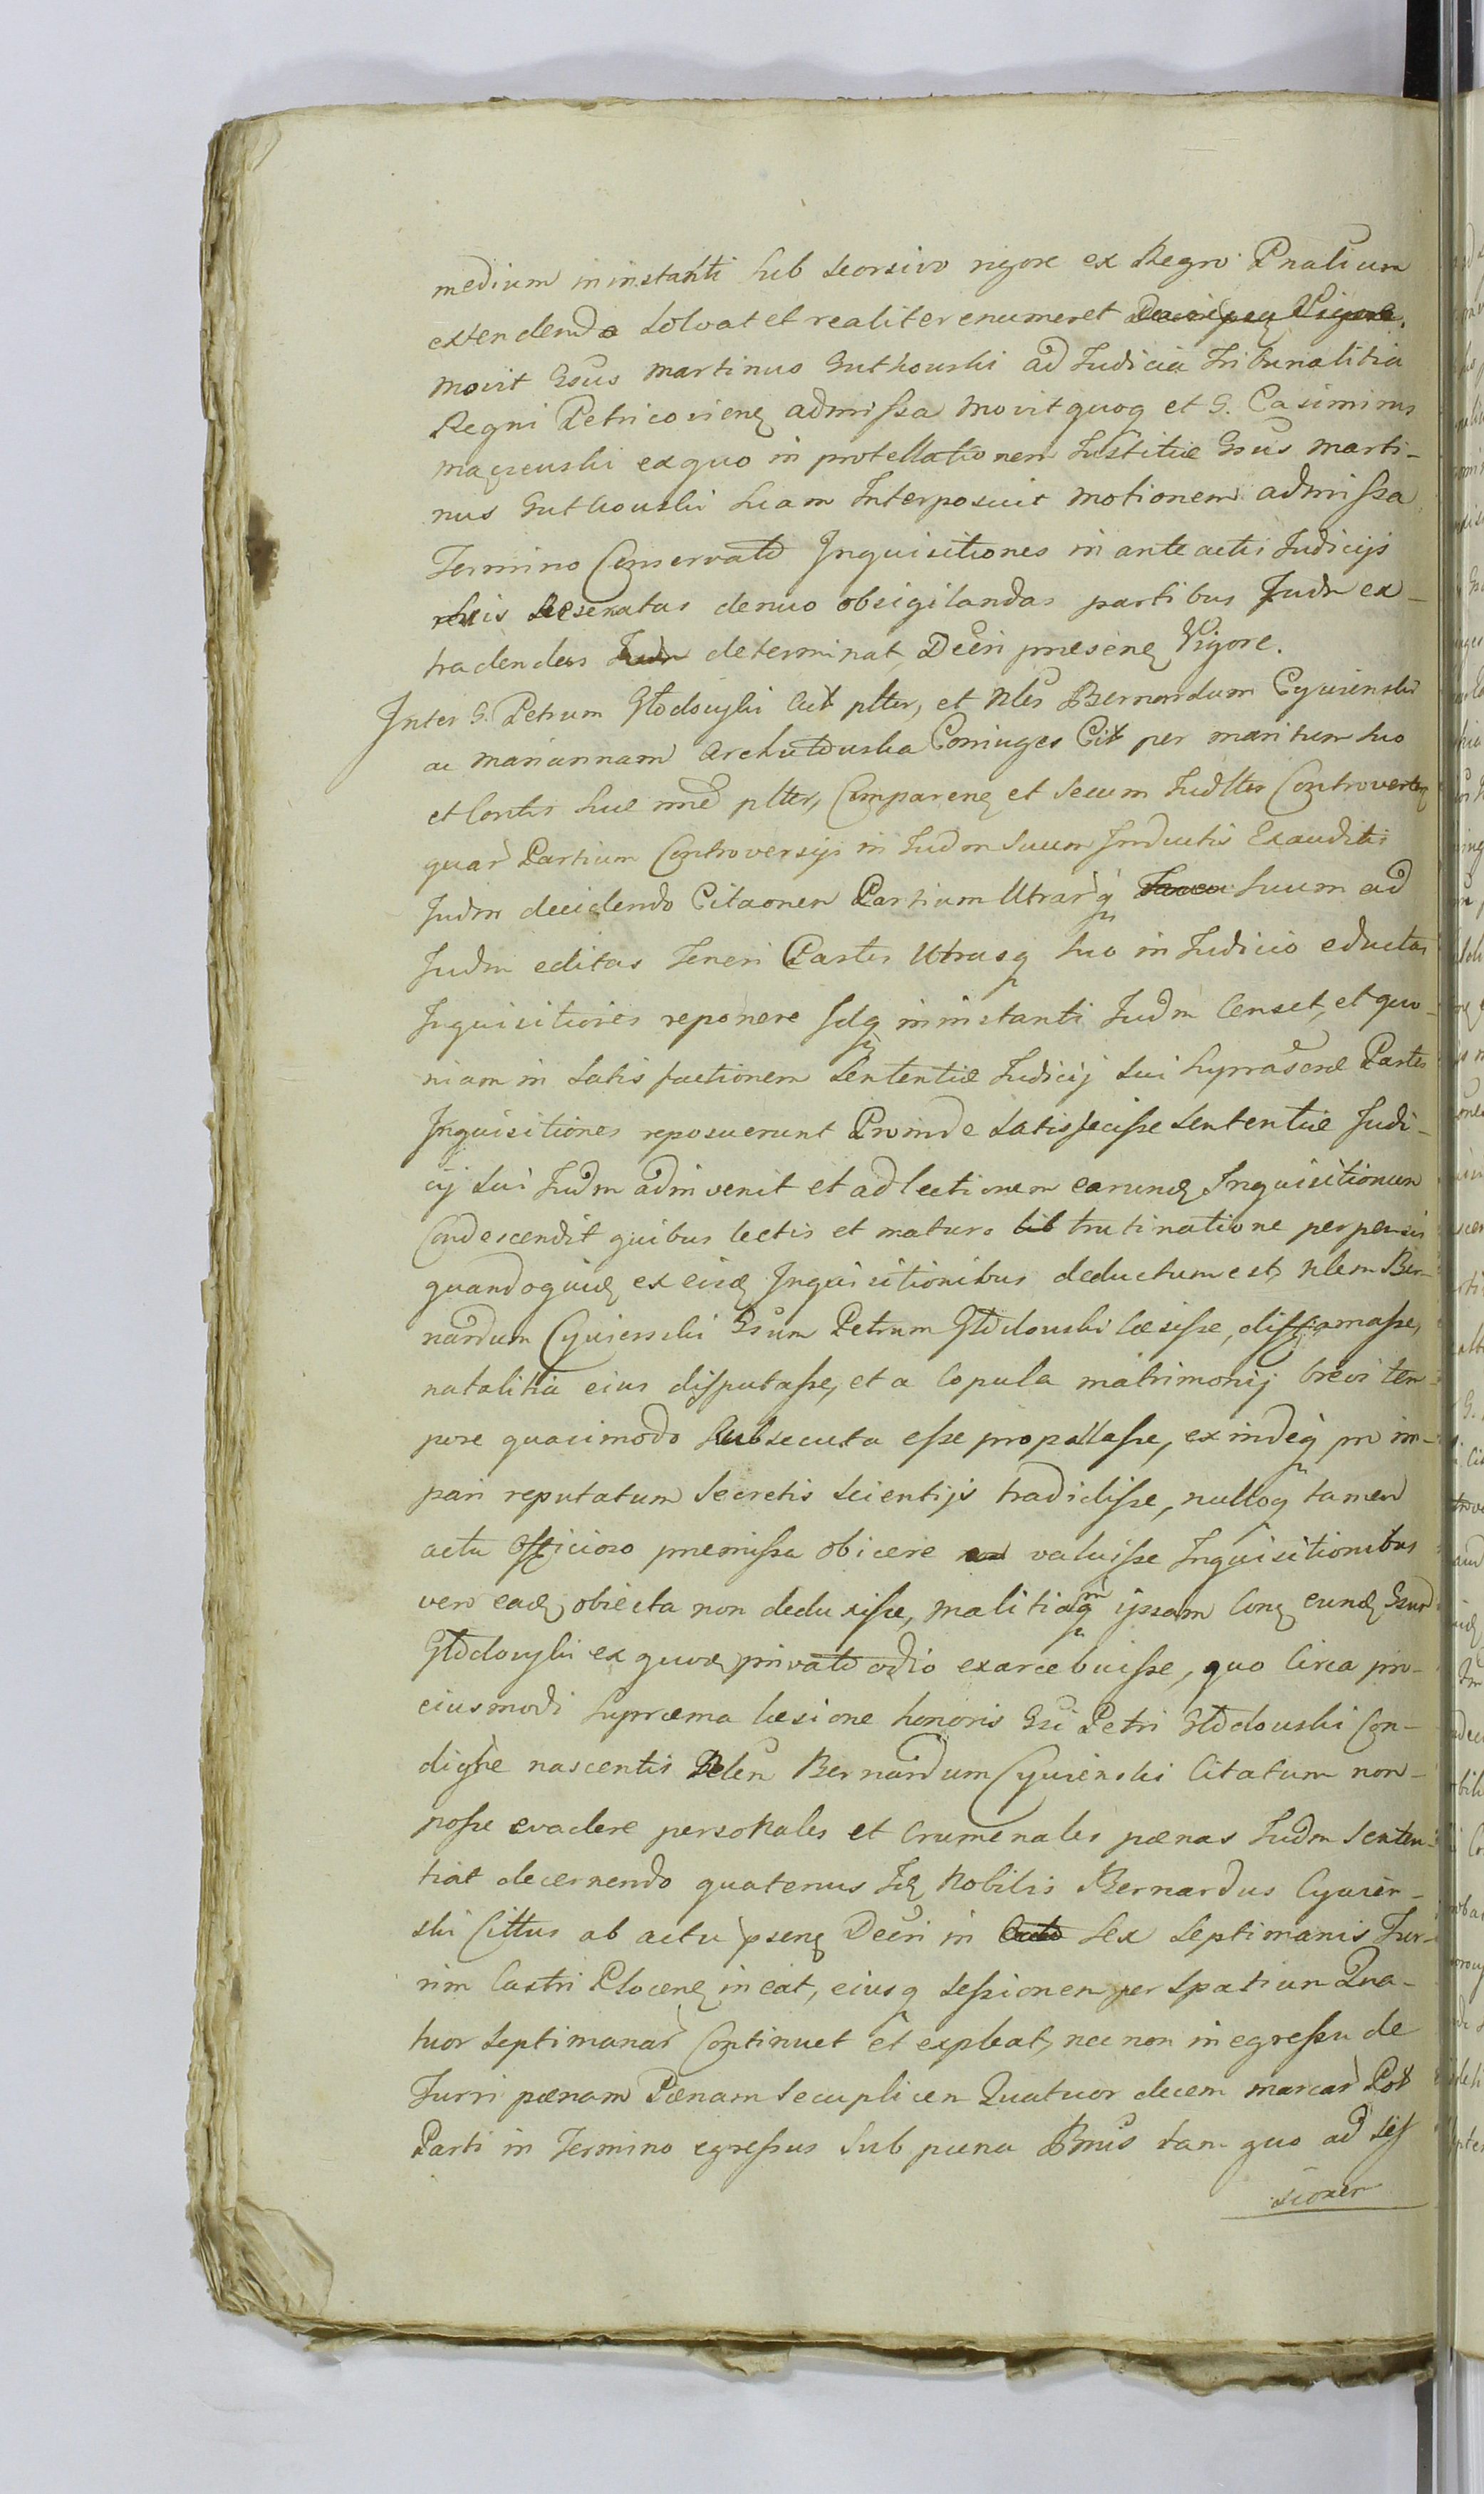 medium in instanti sub seorsivo rigore ex Regro Pnalium
extendendo solvat et realiter enumeret
movit Gsus Martinus Gutkouski ad Judicia Tribunalitia
Regni Petricovien admissa movit quoq et G. Casimirus
ex quo in protellationem Justitiæ Gsus Marti-
nus Gutkouski suam Interposuit motionem admissa
Termino Conservato Inquisitiones in ante actis Judicijs
reseratas denuo obsigilandas partibus Judm ex-
tradendas determinat Decri præsenę Vigore.
Inter G. Petrum Głodouski Act plter, et Nles Bernardum Cywienski
ac Mariannam Archutouska Coniuges Cit per maritum suo
et Contis suæ nne plter, Comparenę et secum Judlter Controverten
quar Partium Controversijs in Judm suum Inductis Exauditis
Judm decidendo Citaonen Partium Utrarq suum ad
Judm editas teneri Partes Utrasq suo in Judicio eductas
Inquisitiones reponere in instanti Judm Censet, et quo-
niam in satis factionem sententiæ Judicij sui suprascræ Partes
Inquisitiones reposuerunt Proinde satisfecisse sententiæ Judi-
cij sui Judm adinvenit et ad lectionem earundę Inquisitionum
Condescendit quibus lectis et maturo trutinatione perpensis
quandoquidę ex eisdę Inquisitionibus deductum est, Nlem Ber-
nardum Cywienski Gsum Petrum Głodouski læsisse, diffamasse,
natalitia eius disputasse, et a Copula matrimonij brevi tem-
pore quasimodo subsecuta esse propallasse, ex indeq pro im-
pari reputatum secretis scientijs tradidisse, nulloq tamen
actu officioso præmissa obicere valuisse Inquisitionibus
vero eadę obiecta non deduxisse, malitiamq ipsam Conę eundę Gsum
Głodouski ex quovę privato odio exarcebuisse, quo Circa pro
eiusmodi supræma læsione honoris Gsi Petri Głodouski Con-
digne nascentis Nlem Bernardum Cywienski Citatum non-
posse evadere personales et Crumenales pænas Judm senten-
tiat decernendo quatenus Idę Nobilis Bernardus Cywien-
ski Cittus ab actu psenę Decri in sex septimanis Tur-
rim Castri Plocenę in eat, eiusq sessionem per spatium Qua-
tuor septimanar Continuet et expleat, nec non in egressu de
Turri pænam Pænam secuplicem Quatuor decem marcar Pot
Parti in Termino egressus sub pæna Bnis tam quo ad ses
sionem